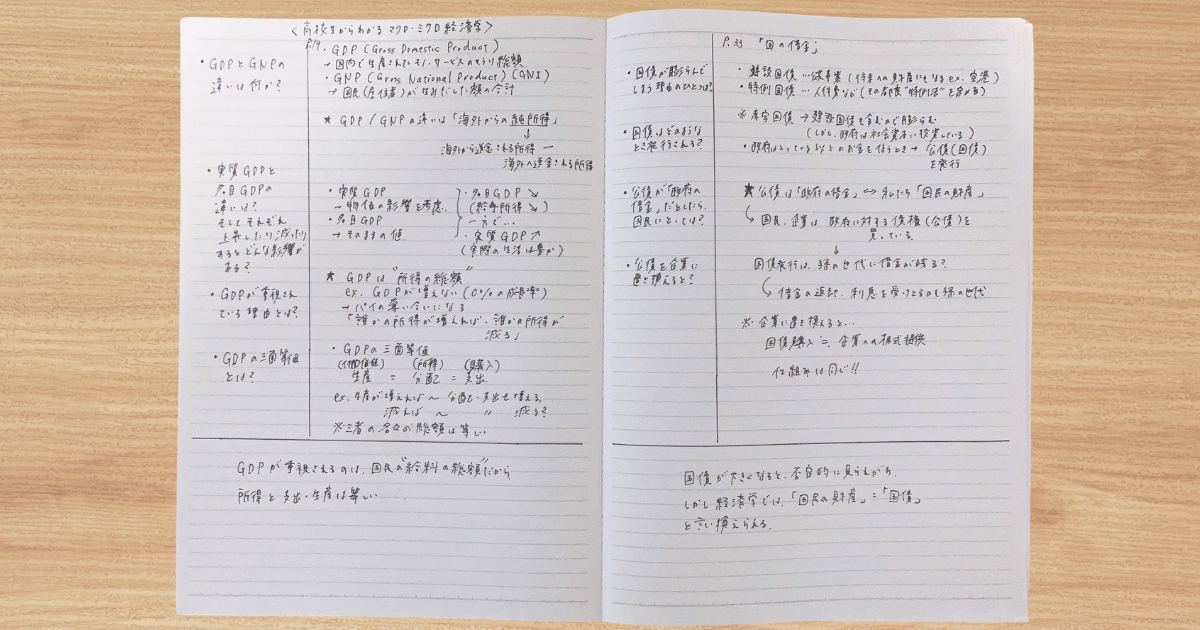 〈高校生からわかる マクロ・ミクロ経済学〉
P.19
・GDPとGNPの
違いは何か?
・実質GDPと
名目GDPの
違いは?
そしてそれぞれ
上昇したり減ったり
するとどんな影響が
ある?
・GDPが重視され
ている理由とは?
・GDPの三面等価
とは?
・GDP (Gross Domestic Product)
→国内で生産されたモノ・サービスの総額
・GNP (Gross National Product) (GNI)
→国民(居住者)が生みだした額の合計
★ GDP/GNPの違いは「海外からの純所得」
↓
海外から送金される所得 ー
海外へ送金される所得
・実質GDP
→物価の影響を考慮
・名目GDP
→そのままの値
・名目GDP ↘
(給与所得 ↘)
一方で…
・実質GDP ↗
(実際の生活は豊か)
★ GDPは"所得の総額"
ex. GDPが増えない(0%の成長率)
→パイの奪い合いになる
「誰かの所得が増えれば、誰かの所得が
減る」
・GDPの三面等価
(付加価値) (所得) (購入)
生産 = 分配 = 支出
ex. 生産が増えれば〜 分配・支出も増える
減れば 〜 〃 減る?
※三者の各々の総額は等しい
GDPが重視されるのは、国民の"給料の総額"だから
所得と支出・生産は等しい
P.33 「国の借金」
・国債が膨らんで
しまう理由のひとつは?
・国債はどのような
とき発行される?
・公債が「政府の
借金」だとしたら、
国民にとっては?
・公債を企業に
置き換えると?
・建設国債 … 公共事業 (将来への財産にもなる ex. 空港)
・特例国債 … 人件費など (その都度"特例法"を定める)
※赤字国債 → 建設国債も含むので膨らむ
(しかし、政府は社会資本に投資している)
・政府は入っている以上のお金を使うとき → 公債(国債)
を発行
★公債は「政府の借金」 ↔ 私たち「国民の財産」
国民、企業は、政府に対する債権(公債)を
買っている
↓
国債発行は、孫の世代に借金が残る?
借金の返却、利息を受けとるのも孫の世代
※企業に置き換えると…
国債購入 = 企業への株式提供
仕組みは同じ!!
国債が大きくなると、否定的に見られがち
しかし経済学では、「国民の財産」=「国債」
と言い換えられる